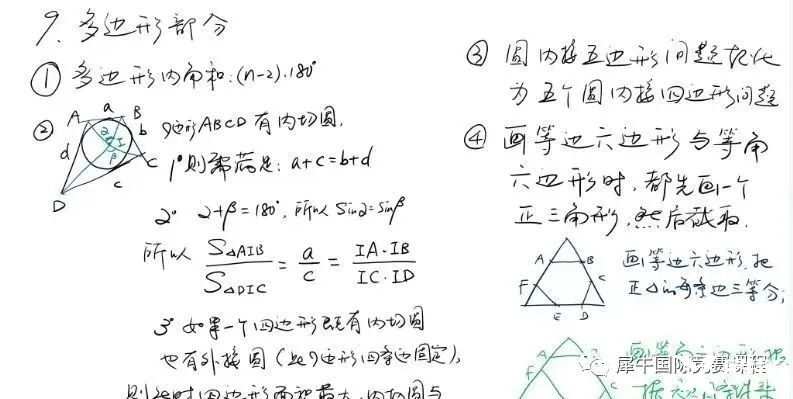 9. 多边形部分
① 多边形内角和:(n-2)·180°
② 四边形ABCD有内切圆.
A a B
α I b
d β C
c
D
1° 则需满足: a+c=b+d
2° α+β=180°, 所以 Sinα=Sinβ
所以 S△AIB / S△DIC = a / c = IA·IB / IC·ID
3° 如果一个四边形既有内切圆
也有外接圆 (此四边形四条边固定),
则此时四边形面积最大, 内切圆与
③ 圆内接五边形问题转化
为五个圆内接四边形问题
④ 画等边六边形与等角
六边形时, 都先画一个
正三角形, 然后截取.
A B
F C
E D
画等边六边形, 把
正△的每条边三等分;
A B
F
画等角六边形, 根
犀牛国际竞赛课程